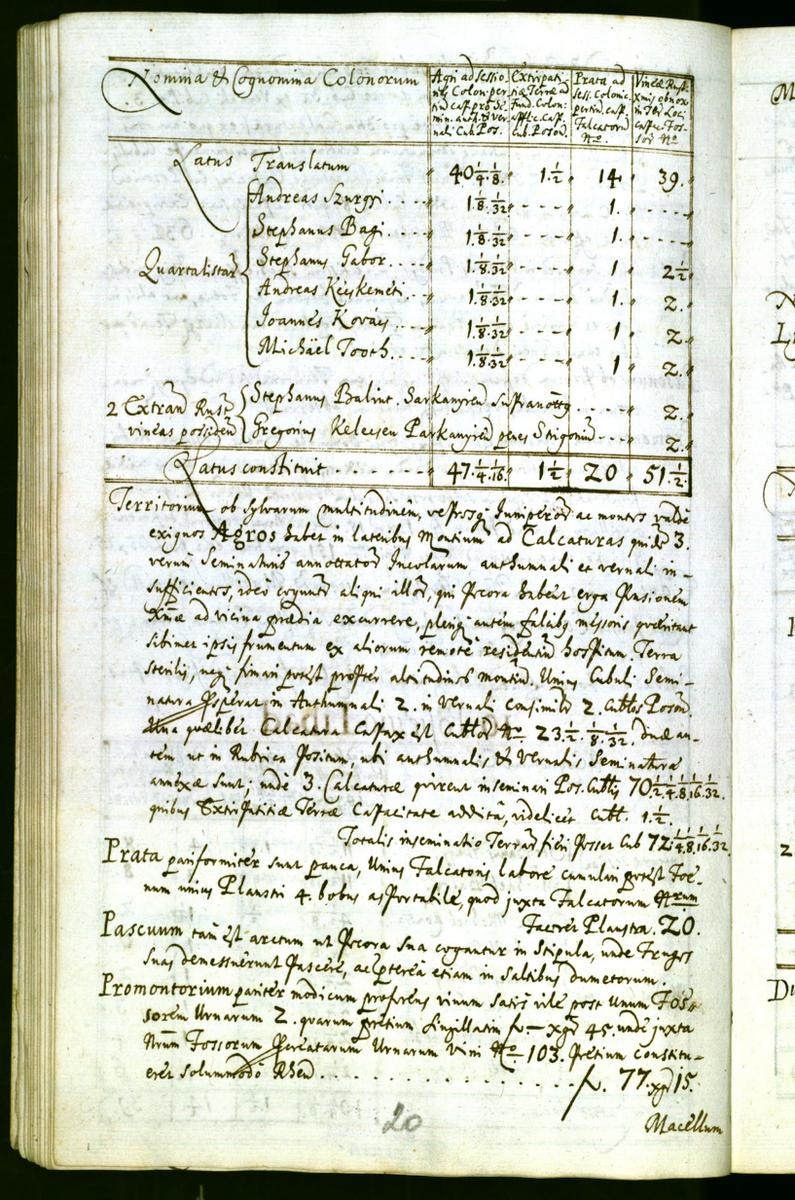 Nomina & Cognomina Colonorum
Agri ad sessio-
nes Colon: per
tin: cap. pro se-
min. auth. & ver-
nali Cub. Pos.
Extirpati-
tiæ Terræ ad
Fund. Colon:
applic. cap.
Cub. Poson.
Prata ad
Sess. Colonic.
pertin. cap.
Falcator
No.
Vineæ Rusti.
in Terr. Loci
cap. Fos-
sor No
Latus Translatum 40 1/4 1/8 1 1/2 14 39.
Quartalistar
Andreas Szurgyi .... 1 1/8 1/32 --- 1. ----
Stephanus Bagi .... 1 1/8 1/32 --- 1. ----
Stephanus Gabor .... 1 1/8 1/32 --- 1 2 1/2
Andreas Kecskemeti .. 1 1/8 1/32 --- 1. 2.
Joannes Kovács .... 1 1/8 1/32 --- 1 2.
Michäel Tooth .... 1 1/8 1/32 --- 1 2.
2 Extran Rust
vineas possiden
Stephanus Balint Sarkanyien ..... 2.
Gregorius Kelecsen Parkanyien penes Strigoniu --- 2.
Latus constituit ....... 47. 1/4 1/16. 1 1/2 20 51. 1/2.
Territorium ob sylvarum multitudinem, Juniperor ac montes valde
exiguos Agros habet in lateribus Montium ad Calcaturas quidem 3.
verum Seminaturis annottator Incolarum authumnali et vernali in-
sufficientes, ideo coguntr aliqui illor, qui Pecora habent erga Pensionem
ad vicina prædia excurrere, pleriq autem falcibus messoris quæritant
sibimet ipsis frumentum ex aliorum remote residentiu hospitum. Terra
sterilis, neq fimari potest propter altitudines montiu. Unius Cubuli Semi-
natura in Authumnali 2. in Vernali Consimilr 2. Cublos Poson.
quælibet Calcatura Capax est Cublor No 23 1/2 1/8 1/32. duæ au-
tem ut in Rubrica Positum, ubi authumnalis & Vernalis Seminatura
annexæ sunt; unde 3. Calcaturæ possent inseminari Pos. Cublis 70 1/2 1/4 1/8 1/16 1/32.
quibus Extirpatitiæ Terræ Capacitate additâ, videlicet Cubl. 1 1/2.
Totalis inseminatio Terrar fieri Posset Cub 72 1/4 1/8 1/16 1/32.
Prata pariformiter sunt pauca, Unius Falcatoris labore cumulari potest Foe-
num unius Plaustri 4. bobus asportabile, quod juxta Falcatorum Nrum
Faceret Plaustra. 20.
Pascuum tam est arctum ut Pecora sua cogantur in Stipula, unde Fruges
suas demessuerunt Pascere, ac ptereà etiam in saltibus dumetorum.
Promontorium pariter modicum proferens vinum satis vile post Unum Fos-
sorem Urnarum 2. quarum pretium singillatim f. — xgr 45. unde juxta
Nrum Fossorum Urnarum Vini No 103. Pretium Constitu-
eret solummodò Rhen ............... f. 77. xgr 15.
20
Macellum